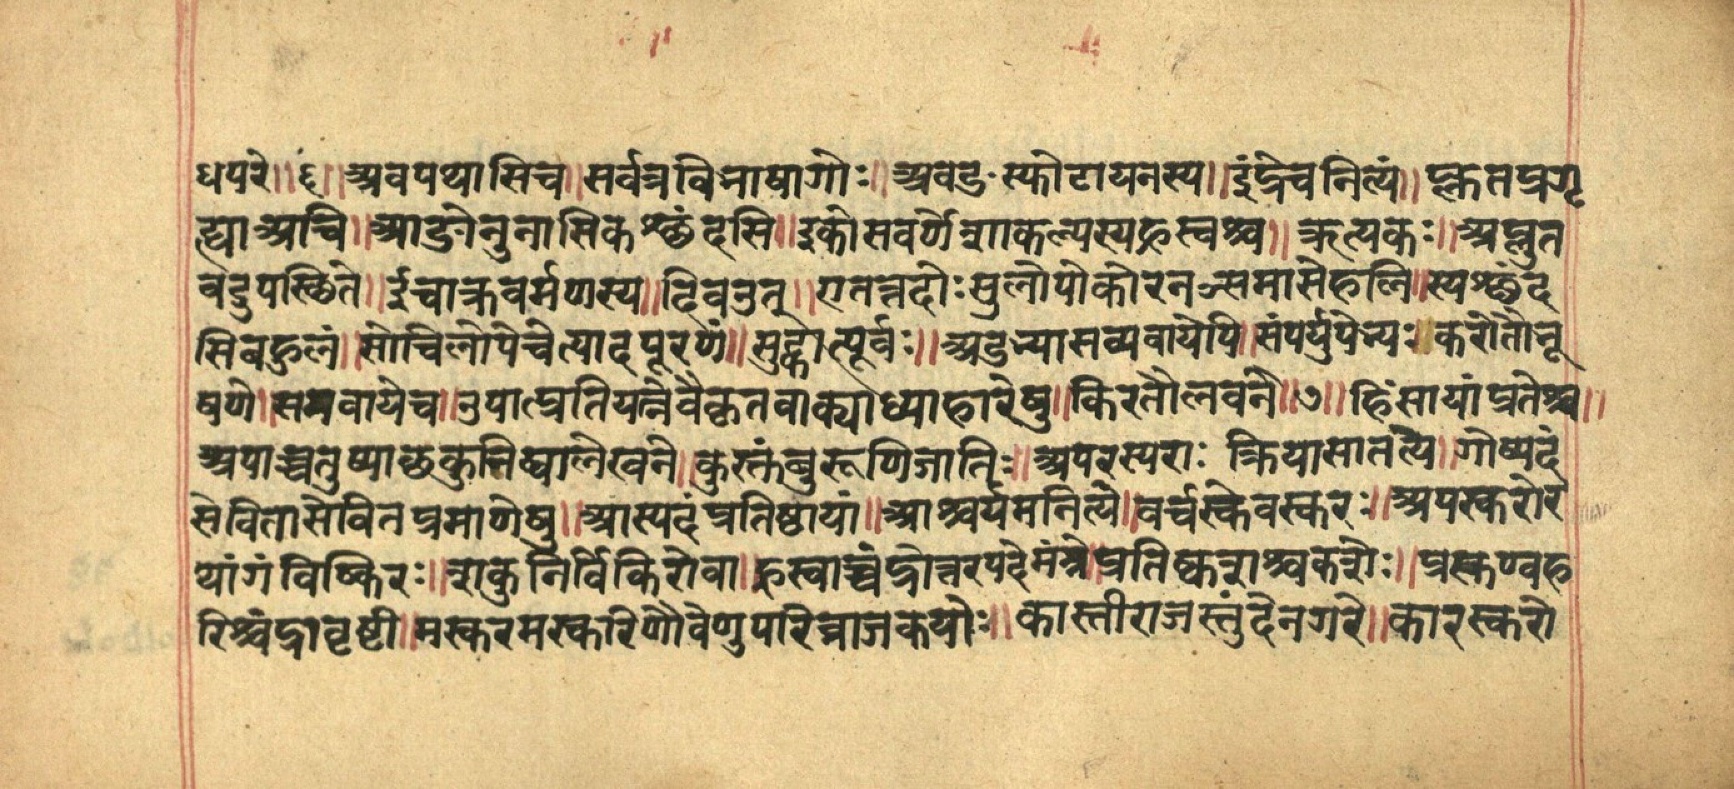 धपरे॥६॥अवपथासिच॥सर्वत्रविभाषागोः॥अवङस्फोटायनस्य॥इंद्रेचनित्यं॥प्लुतप्रगृ
ह्याअचि॥आङोनुनासिकश्छंदसि॥इकोसवर्णेशाकल्यस्यह्रस्वश्च॥ऋत्यकः॥अप्लुत
वदुपस्थिते॥ईचाक्रवर्मणस्य॥दिवउत्॥एतत्तदोःसुलोपोकोरनञ्समासेहलि॥स्यश्छंद
सिबहुलं॥सोचिलोपेचेत्पादपूरणं॥सुट्कात्पूर्वः॥अडभ्यासव्यवायेपि॥संपर्युपेभ्यः॥करोतौभू
षणे॥समवायेच॥उपात्प्रतियत्नवैकृतवाक्याध्याहारेषु॥किरतौलवने॥७॥हिंसायांप्रतेश्च॥
अपाच्चतुष्पाछकुनिष्वालेखने॥कुस्तुंबुरूणिजातिः॥अपरस्पराः क्रियासातत्ये॥गोष्पदं
सेवितासेवितप्रमाणेषु॥आस्पदंप्रतिष्ठायां॥आश्चर्यमनित्ये॥वर्चस्केवस्करः॥अपस्करोर
थांगंविष्किरः॥शकुनिर्विकिरोवा॥ह्रस्वाच्चंद्रोत्तरपदेमंत्रे॥प्रतिष्कशश्चकशेः॥प्रस्कण्वह
रिश्चंद्रावृषी॥मस्करमस्करिणौवेणुपरिव्राजकयोः॥कास्तीराजस्तुंदेनगरे॥कारस्करो